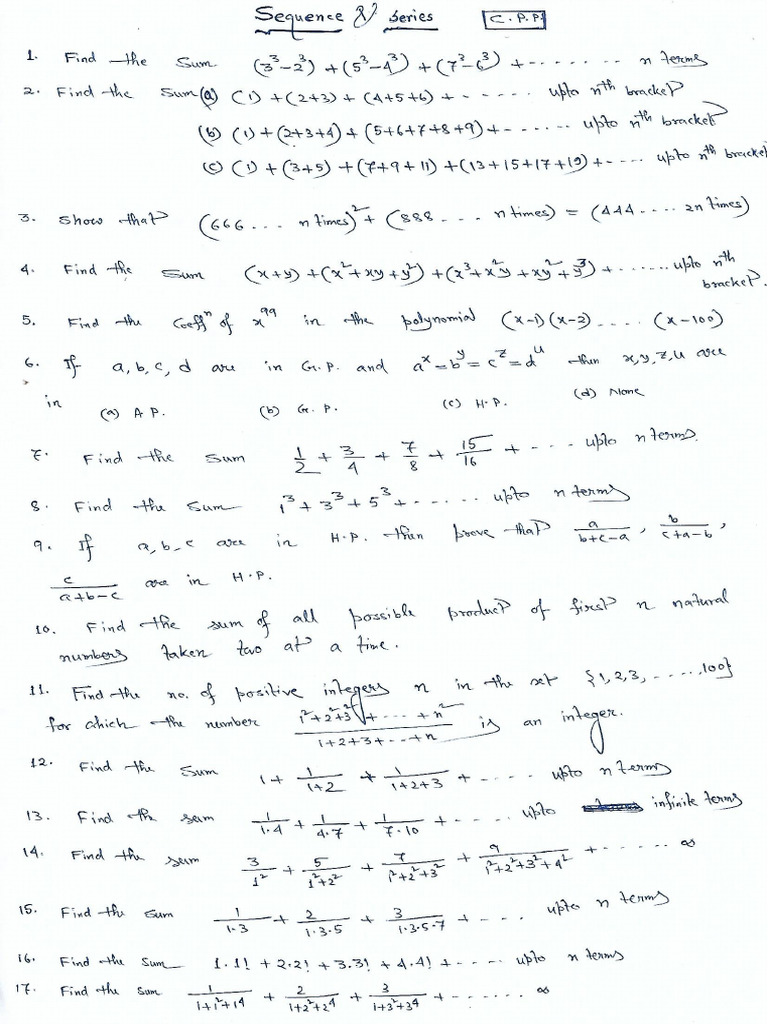 Sequence & series C.P.P
1. Find the Sum (3³-2³)+(5³-4³)+(7³-6³)+....... n terms
2. Find the Sum (a) (1)+(2+3)+(4+5+6)+....... upto nth bracket
(b) (1)+(2+3+4)+(5+6+7+8+9)+....... upto nth bracket
(c) (1)+(3+5)+(7+9+11)+(13+15+17+19)+.... upto nth bracket
3. Show that (666... n times)²+(888... n times) = (444.... 2n times)
4. Find the Sum (x+y)+(x²+xy+y²)+(x³+x²y+xy²+y³)+...... upto nth
bracket.
5. Find the Coeffⁿ of x⁹⁹ in the polynomial (x-1)(x-2).... (x-100)
6. If a, b, c, d are in G.P. and aˣ=bʸ=cᶻ=dᵘ then x,y,z,u are
in (a) A P. (b) G. P. (c) H.P. (d) None
7. Find the Sum 1/2 + 3/4 + 7/8 + 15/16 + .... upto n terms.
8. Find the Sum 1³+3³+5³+...... upto n terms
9. If a, b, c are in H.P. then prove that a/(b+c-a), b/(c+a-b),
c/(a+b-c) are in H.P.
10. Find the sum of all possible product of first n natural
numbers taken two at a time.
11. Find the no. of positive integers n in the set {1,2,3,.....,100}
for which the number (1²+2²+3²+....+n²)/(1+2+3+...+n) is an integer.
12. Find the Sum 1 + 1/(1+2) + 1/(1+2+3) + .... upto n terms
13. Find the sum 1/1.4 + 1/4.7 + 1/7.10 + .... upto infinite terms
14. Find the sum 3/1² + 5/(1²+2²) + 7/(1²+2²+3²) + 9/(1²+2²+3²+4²) + ...... ∞
15. Find the Sum 1/1.3 + 2/1.3.5 + 3/1.3.5.7 + .... upto n terms
16. Find the Sum 1.1! + 2.2! + 3.3! + 4.4! + .... upto n terms
17. Find the Sum 1/(1+1²+1⁴) + 2/(1+2²+2⁴) + 3/(1+3²+3⁴) + ...... ∞